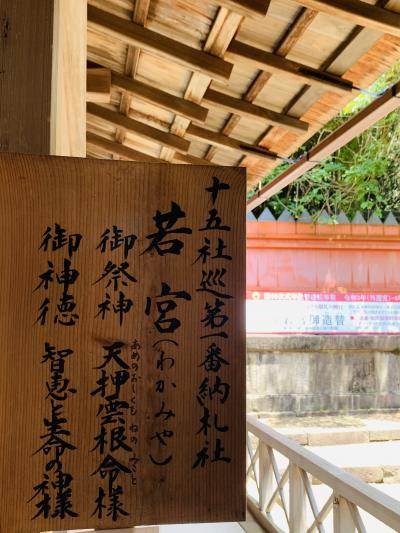 十五社巡第一番納札社
若宮(わかみや)
御祭神 天押雲根命様
あめのおしくもねのみこと
御神徳 智恵と生命の神様
御造替